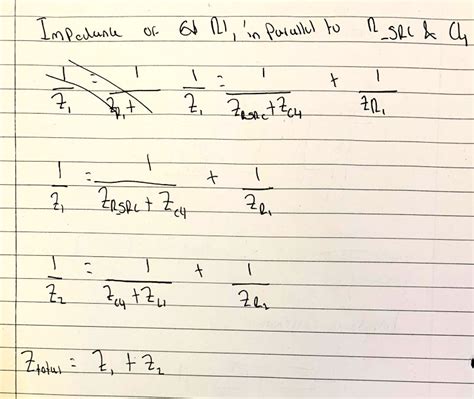 Impedance or R1, in Parallel to R_SRC & C4
1/Z1 = 1/ZR1 + 1/Z1 = 1/ZRSRC+ZC4 + 1/ZR1
1/Z1 = 1/ZRSRC + ZC4 + 1/ZR1
1/Z2 = 1/ZC4 + ZL1 + 1/ZR2
Ztotal = Z1 + Z2